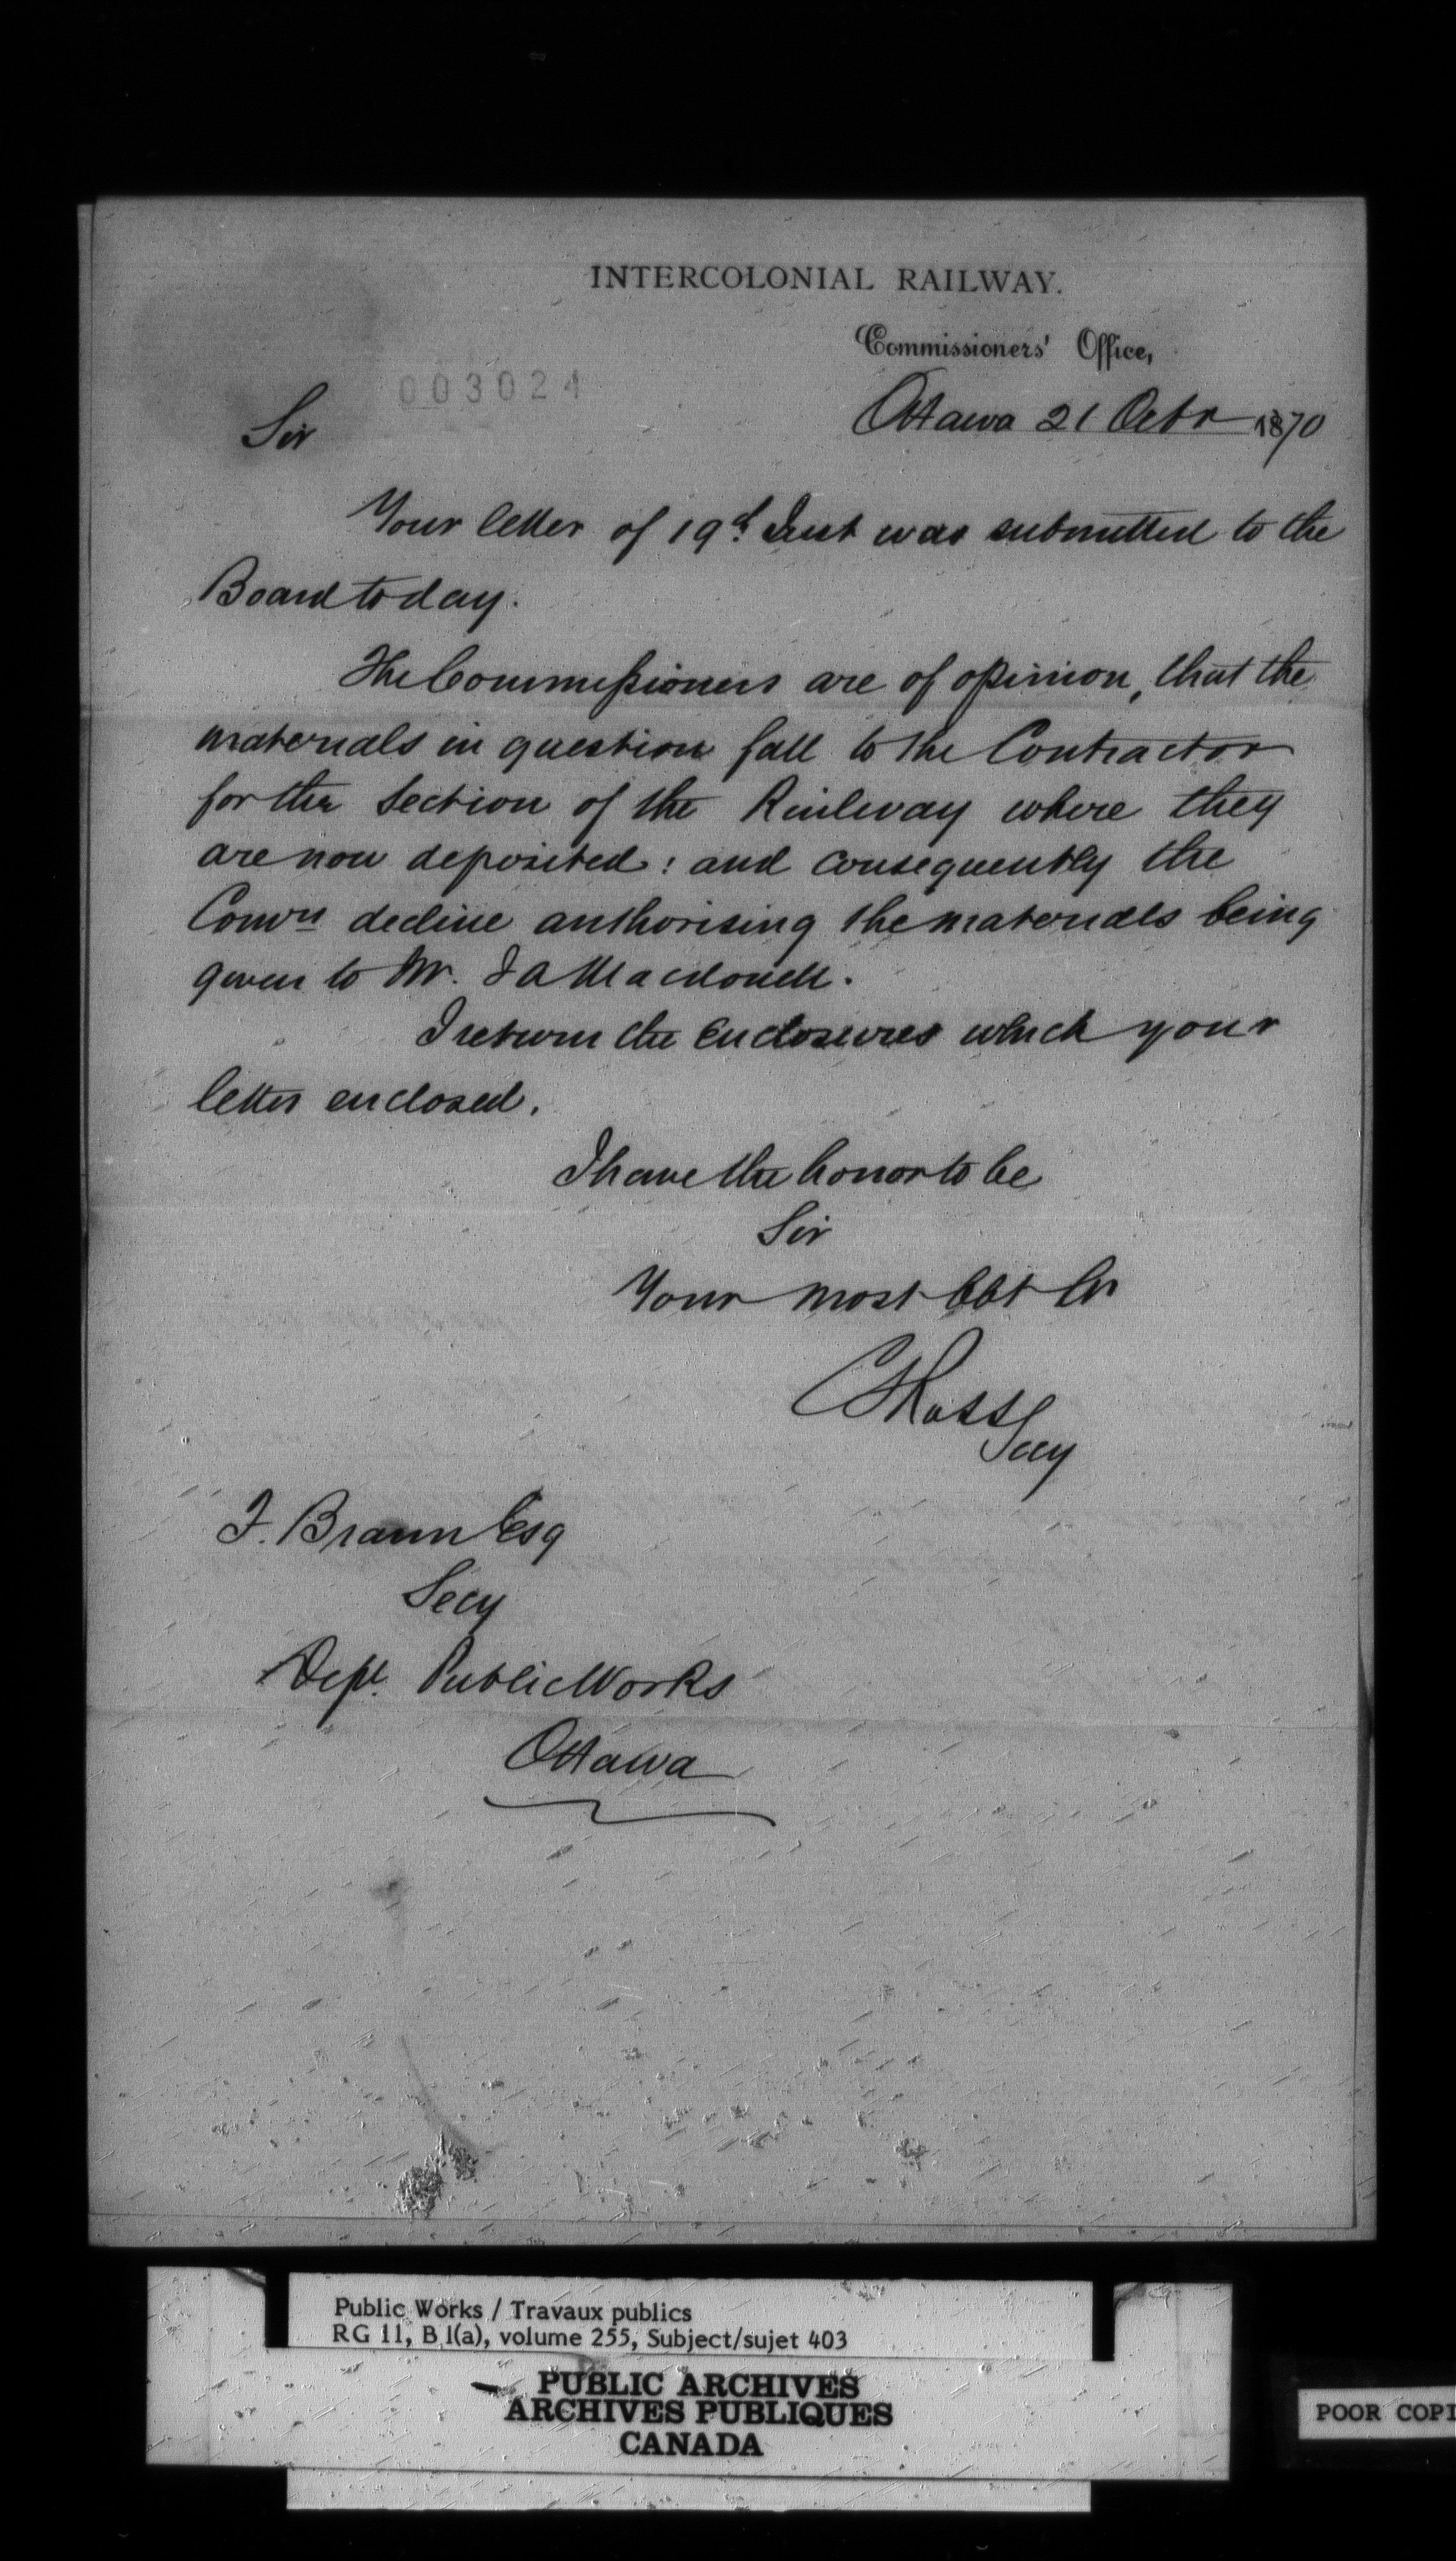 INTERCOLONIAL RAILWAY.
Commissioners' Office,
003024
Ottawa 21 Octr 1870
Sir
Your letter of 19th Inst was submitted to the
Board today.
The Commissioners are of opinion, that the
materials in question fall to the Contractor
for the Section of the Railway where they
are now deposited: and consequently the
Comrs decline authorising the materials being
given to Mr. J A Macdonell.
I return the enclosures which your
letter enclosed.
I have the honor to be
Sir
Your most Obt Sr
C S Ross
Secy
F. Braun Esq
Secy
Dept. Public Works
Ottawa
Public Works / Travaux publics
RG 11, B 1(a), volume 255, Subject/sujet 403
PUBLIC ARCHIVES
ARCHIVES PUBLIQUES
CANADA
POOR COPI